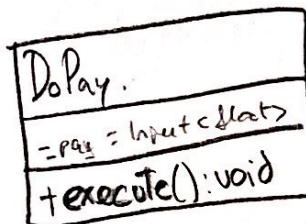 DoPay.
= pay = Input<float>
+ execute(): void